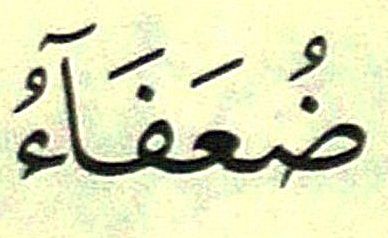 ضُعَفَآءُ